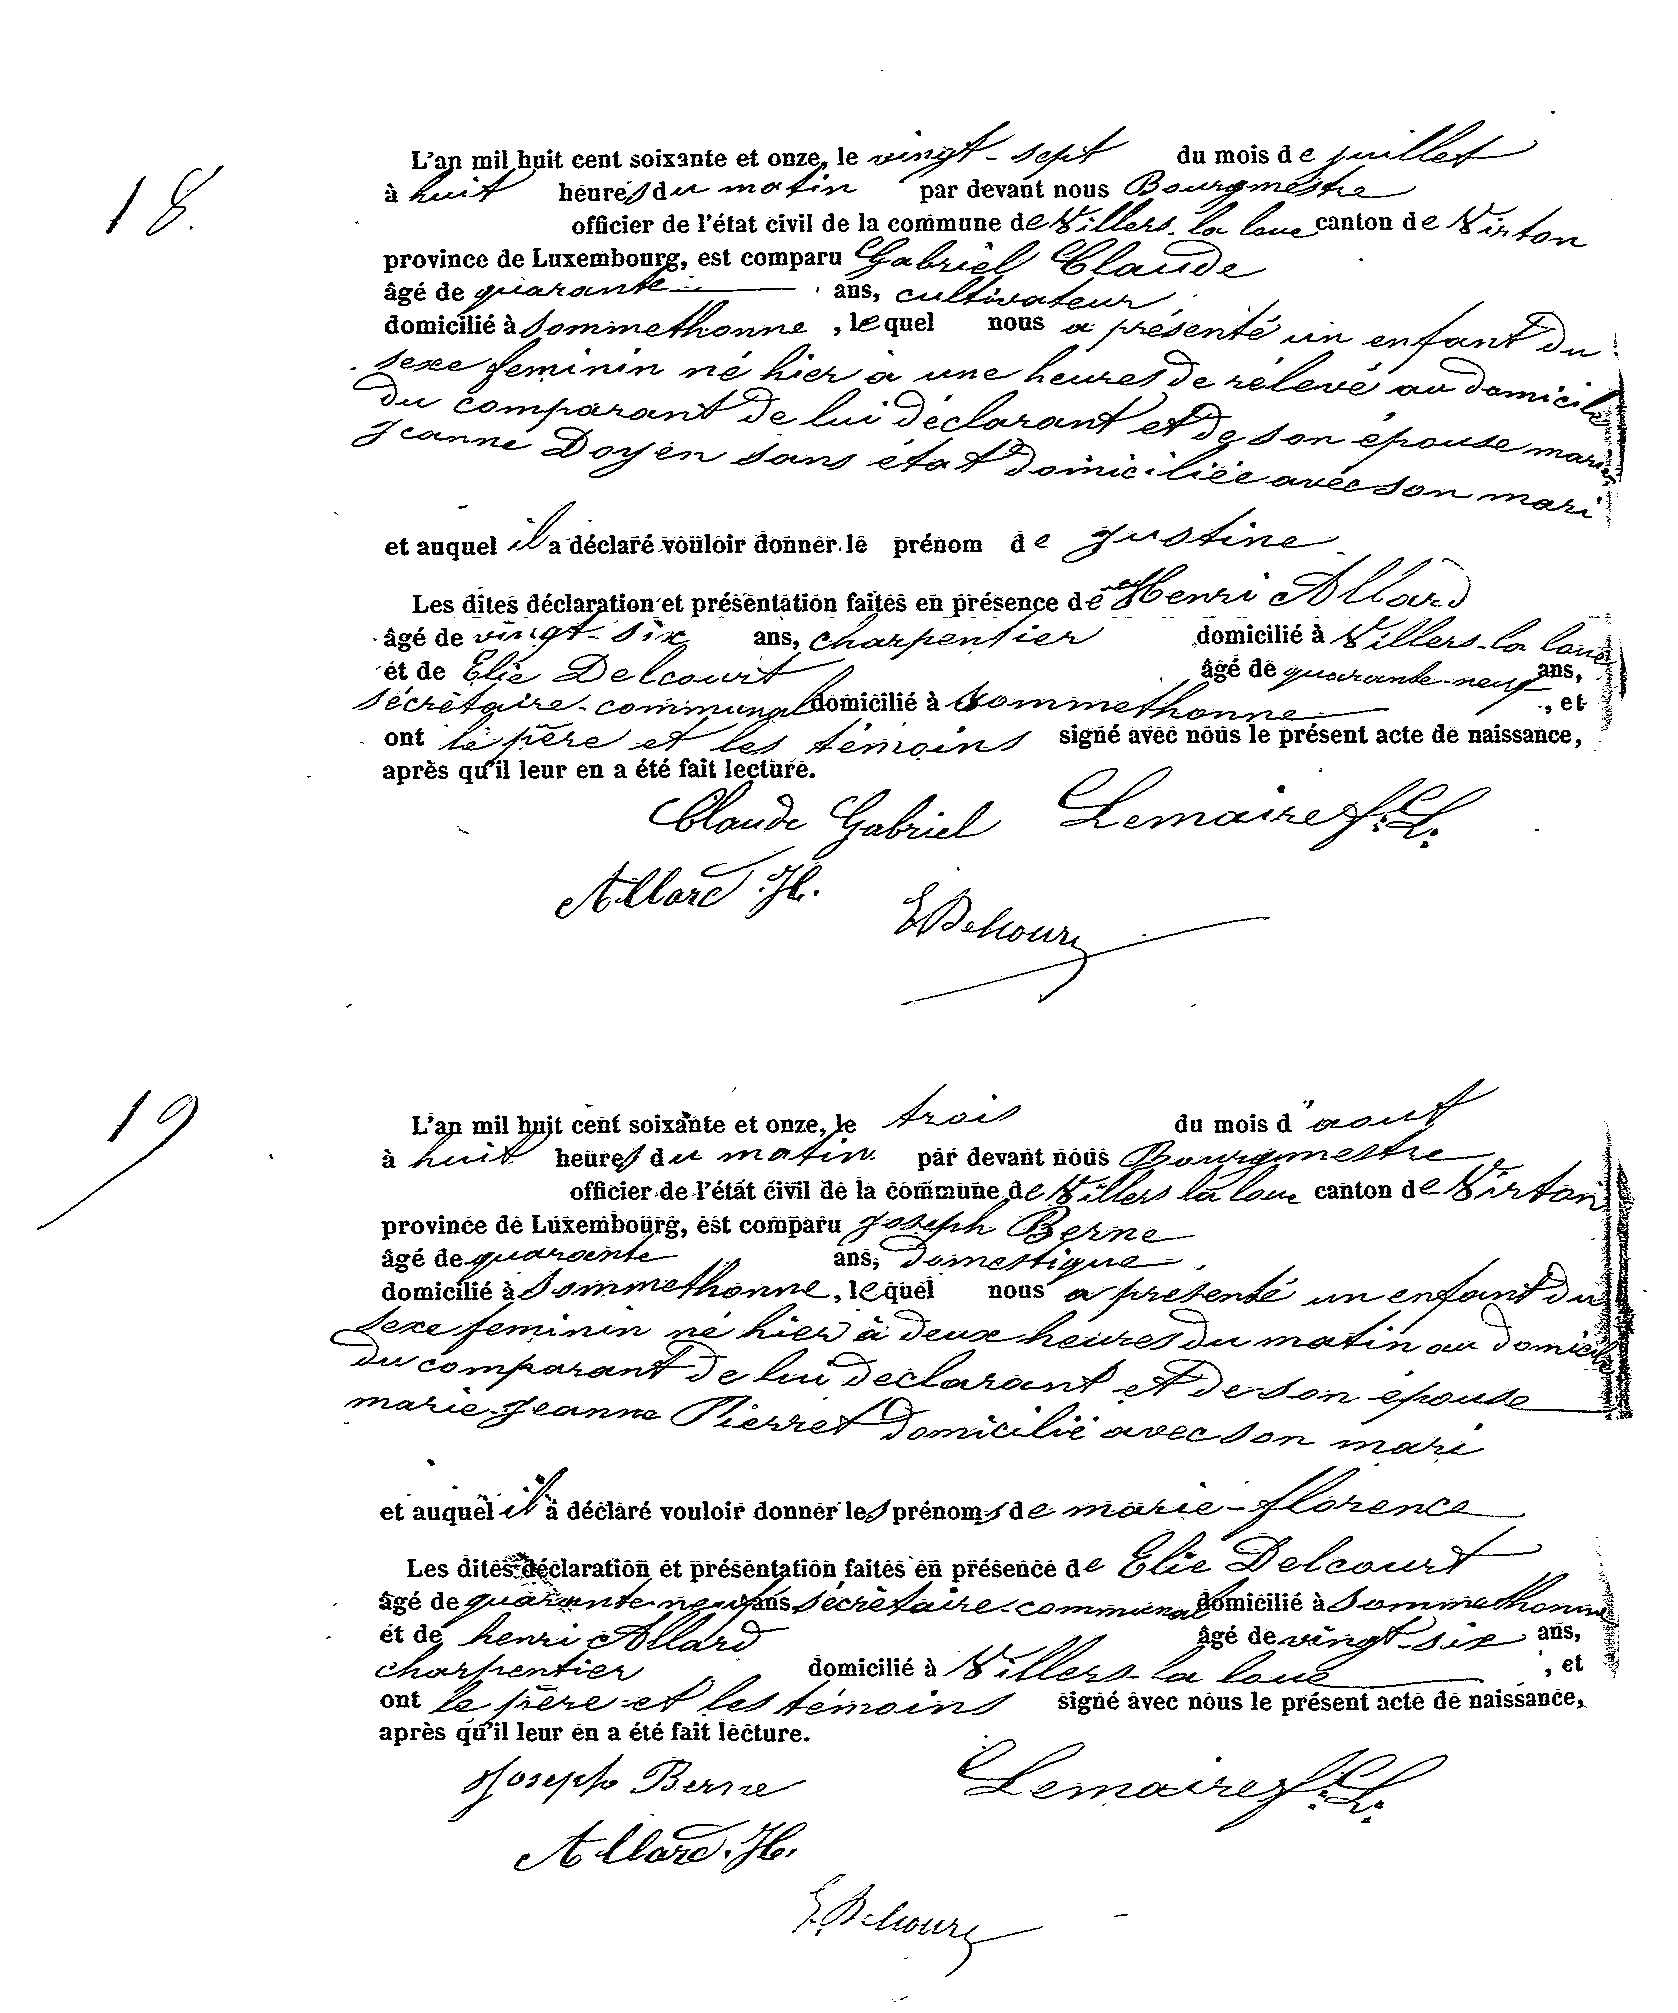 18.
L'an mil huit cent soixante et onze, le vingt-sept du mois de juillet
à huit heures du matin par devant nous Bourgmestre
officier de l'état civil de la commune de Villers-la loue canton de Virton
province de Luxembourg, est comparu Gabriel Claude
âgé de quarante ans, cultivateur,
domicilié à Sommethonne, lequel nous a présenté un enfant du
sexe feminin né hier à une heures de rélevé au domicile
du comparant de lui déclarant et de son épouse marie
Jeanne Doyen sans état domiciliée avec son mari
et auquel il a déclaré vouloir donner le prénom de Justine
Les dites déclaration et présentation faites en présence de Henri Allard
âgé de vingt-six ans, charpentier domicilié à Villers-la loue
et de Elie Delcourt âgé de quarante-neuf ans,
sécrètaire-communal domicilié à Sommethonne, et
ont le père et les témoins signé avec nous le présent acte de naissance,
après qu'il leur en a été fait lecture.
Claude Gabriel Lemaire f. L.
Allard .H.
E Delcourt
19
L'an mil huit cent soixante et onze, le trois du mois d'aout
à huit heures du matin par devant nous Bourgmestre
officier de l'état civil de la commune de Villers la loue canton de Virton
province de Luxembourg, est comparu Joseph Berne
âgé de quarante ans, domestique,
domicilié à Sommethonne, lequel nous a presenté un enfant du
sexe feminin né hier à deux heures du matin au domicile
du comparant de lui declarant et de son épouse
marie-Jeanne Pierret domicilié avec son mari
et auquel il a déclaré vouloir donner les prénoms de marie-florence
Les dites déclaration et présentation faites en présence de Elie Delcourt
âgé de quarante-neuf ans, sécrètaire-communal domicilié à Sommethonne
et de henri Allard âgé de vingt-six ans,
charpentier domicilié à Villers-la loue, et
ont le père et les témoins signé avec nous le présent acte de naissance,
après qu'il leur en a été fait lecture.
Joseph Berne Lemaire f. L.
Allard. H.
E. Delcourt